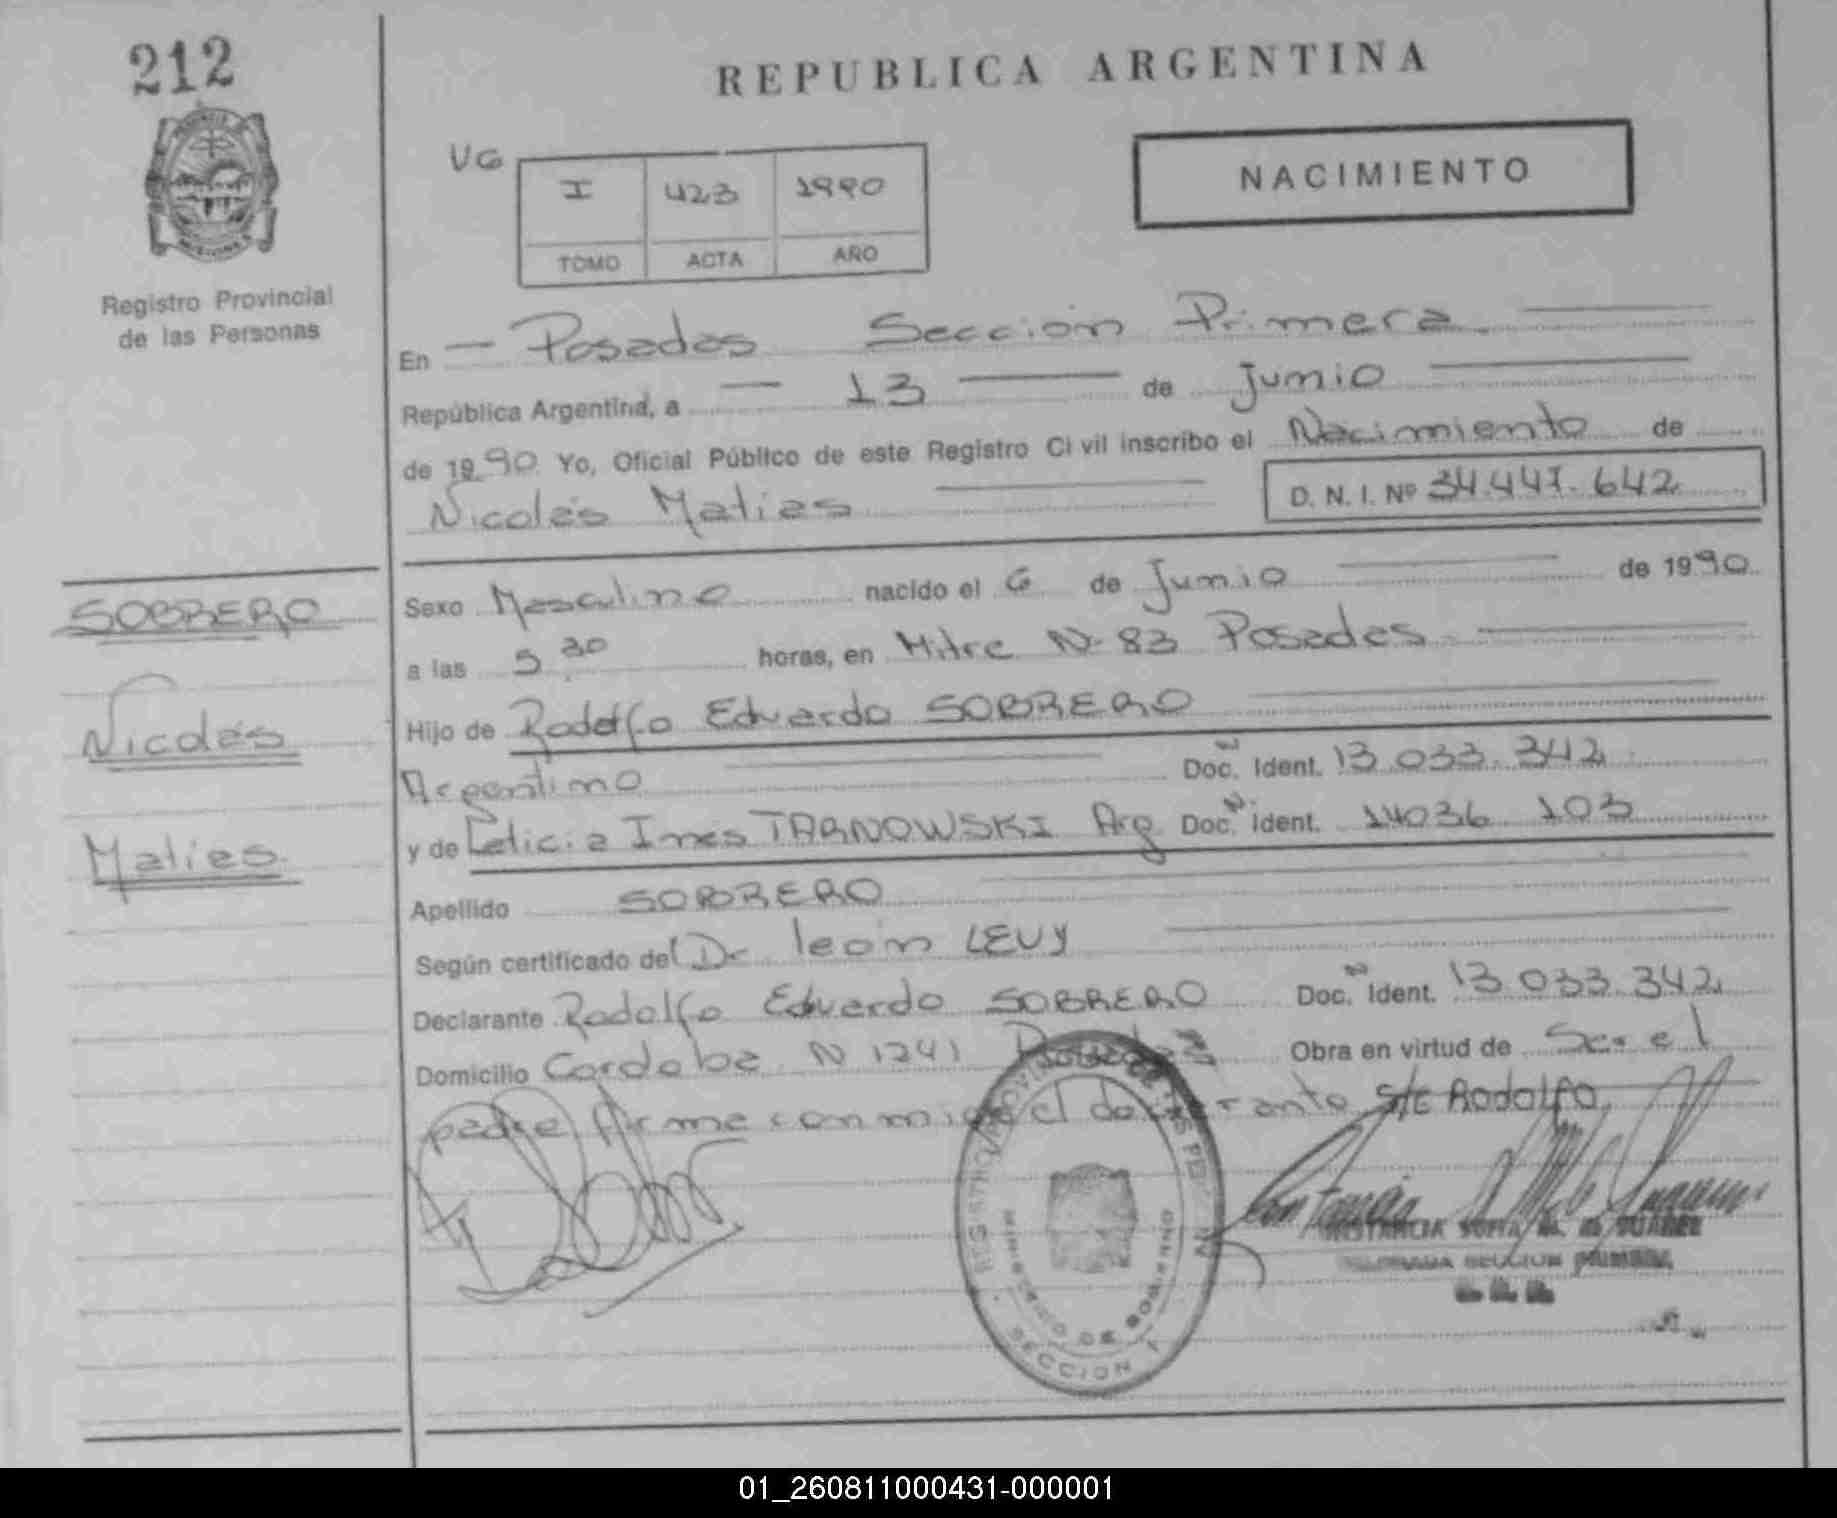 212
REPUBLICA ARGENTINA
VG
I 423 1990
TOMO ACTA AÑO
NACIMIENTO
Registro Provincial
de las Personas
En — Posadas Sección Primera
República Argentina, a — 13 — de Junio
de 1990 Yo, Oficial Público de este Registro Civil inscribo el Nacimiento de
Nicolás Matias D. N. I. Nº 34.447.642
SOBRERO
Nicolás
Matias
Sexo Masculino nacido el 6 de Junio de 1990
a las 5.30 horas, en Mitre Nº 83 Posadas
Hijo de Rodolfo Eduardo SOBRERO
Argentino Doc. Ident. 13.033.342
y de Leticia Ines TARNOWSKI Arg Doc. Ident. 14036 103
Apellido SOBRERO
Según certificado del Dr león LEVY
Declarante Rodolfo Eduardo SOBRERO Doc. Ident. 13.033.342
Domicilio Cordoba N 1241 Posadas Obra en virtud de Ser el
padre firma conmigo el declarante S/E Rodolfo
MINISTERIO DE GOBIERNO
SECCION 1
SECCION PRIMERA
01_260811000431-000001